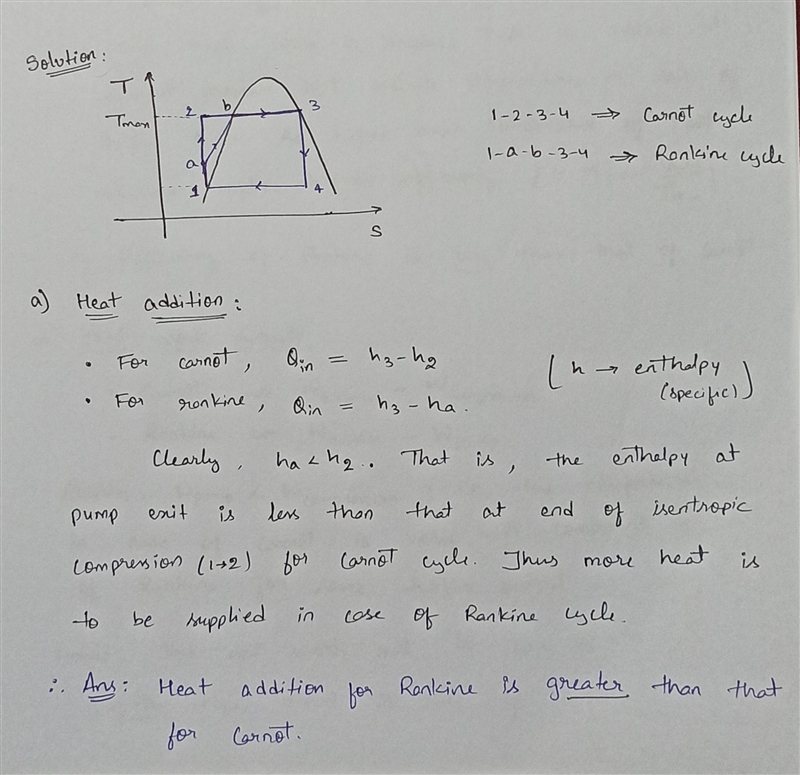 Solution:
T
Tmax
2
b
3
a
1
4
S
1-2-3-4 ⇒ Carnot cycle
1-a-b-3-4 ⇒ Rankine cycle
a) Heat addition:
• For carnot, Qin = h3-h2
• For rankine, Qin = h3-ha.
[h → enthalpy
(specific))
Clearly, ha < h2.. That is, the enthalpy at
pump exit is less than that at end of isentropic
compression (1→2) for Carnot cycle. Thus more heat is
to be supplied in case of Rankine cycle.
∴ Ans: Heat addition for Rankine is greater than that
for Carnot.